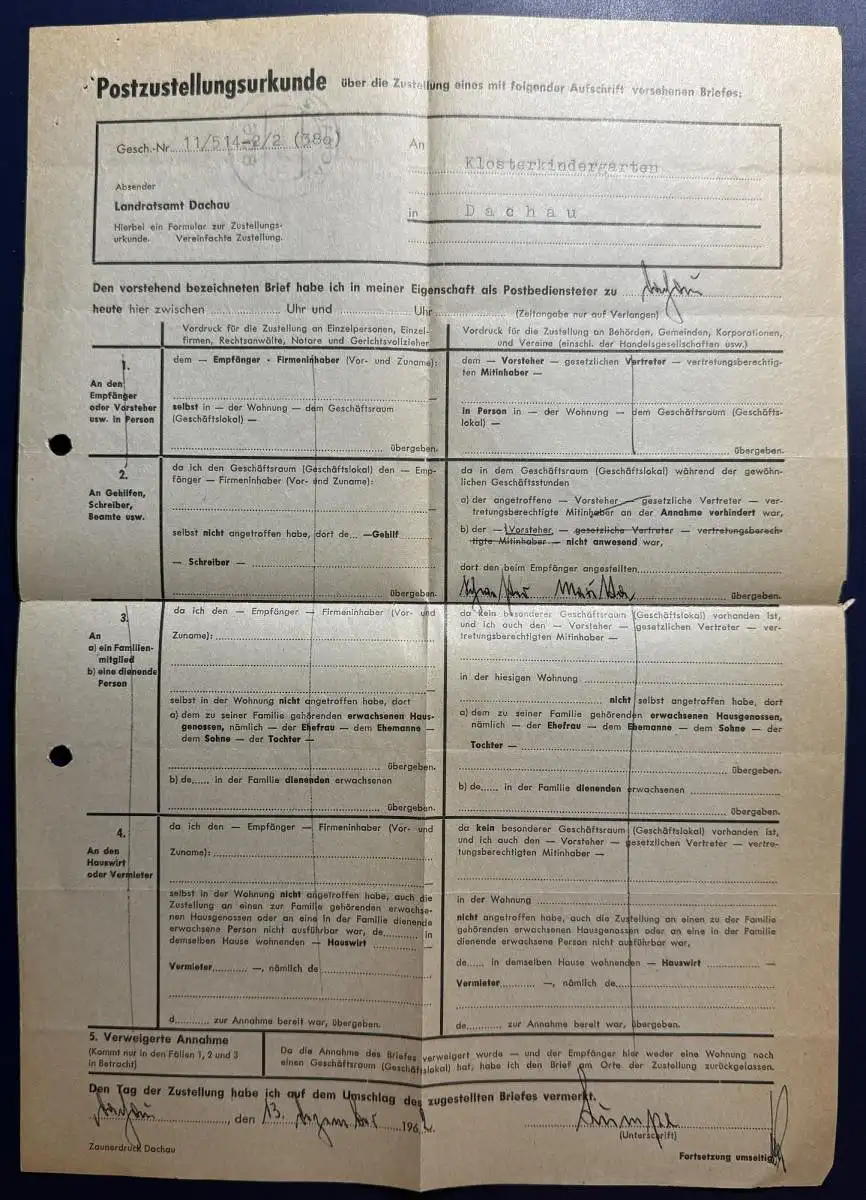 Postzustellungsurkunde über die Zustellung eines mit folgender Aufschrift versehenen Briefes:
Gesch.-Nr. 11/514-2/2 (38g)
An
Klosterkindergarten
Absender
Landratsamt Dachau
in Dachau
Hierbei ein Formular zur Zustellungs-
urkunde. Vereinfachte Zustellung.
Den vorstehend bezeichneten Brief habe ich in meiner Eigenschaft als Postbediensteter zu Dachau
heute hier zwischen Uhr und Uhr (Zeitangabe nur auf Verlangen)
Vordruck für die Zustellung an Einzelpersonen, Einzel-
firmen, Rechtsanwälte, Notare und Gerichtsvollzieher
Vordruck für die Zustellung an Behörden, Gemeinden, Korporationen,
und Vereine (einschl. der Handelsgesellschaften usw.)
1.
An den
Empfänger
oder Vorsteher
usw. in Person
dem — Empfänger - Firmeninhaber (Vor- und Zuname):
selbst in — der Wohnung — dem Geschäftsraum
(Geschäftslokal) —
übergeben.
dem — Vorsteher — gesetzlichen Vertreter — vertretungsberechtig-
ten Mitinhaber —
in Person in — der Wohnung — dem Geschäftsraum (Geschäfts-
lokal) —
übergeben.
2.
An Gehilfen,
Schreiber,
Beamte usw.
da ich den Geschäftsraum (Geschäftslokal) den — Emp-
fänger — Firmeninhaber (Vor- und Zuname):
selbst nicht angetroffen habe, dort de... —Gehilf
— Schreiber —
übergeben.
da in dem Geschäftsraum (Geschäftslokal) während der gewöhn-
lichen Geschäftsstunden
a) der angetroffene — Vorsteher — gesetzliche Vertreter — ver-
tretungsberechtigte Mitinhaber an der Annahme verhindert war,
b) der — Vorsteher — gesetzliche Vertreter — vertretungsberech-
tigte Mitinhaber — nicht anwesend war,
dort den beim Empfänger angestellten
übergeben.
3.
An
a) ein Familien-
mitglied
b) eine dienende
Person
da ich den — Empfänger — Firmeninhaber (Vor- und
Zuname):
selbst in der Wohnung nicht angetroffen habe, dort
a) dem zu seiner Familie gehörenden erwachsenen Haus-
genossen, nämlich — der Ehefrau — dem Ehemanne —
dem Sohne — der Tochter —
übergeben.
b) de...... in der Familie dienenden erwachsenen
übergeben.
da kein besonderer Geschäftsraum (Geschäftslokal) vorhanden ist,
und ich auch den — Vorsteher — gesetzlichen Vertreter — ver-
tretungsberechtigten Mitinhaber —
in der hiesigen Wohnung
nicht selbst angetroffen habe, dort
a) dem zu seiner Familie gehörenden erwachsenen Hausgenossen,
nämlich — der Ehefrau — dem Ehemanne — dem Sohne — der
Tochter —
übergeben.
b) de...... in der Familie dienenden erwachsenen
übergeben.
4.
An den
Hauswirt
oder Vermieter
da ich den — Empfänger — Firmeninhaber (Vor- und
Zuname):
selbst in der Wohnung nicht angetroffen habe, auch die
Zustellung an einen zur Familie gehörenden erwachse-
nen Hausgenossen oder an eine in der Familie dienende
erwachsene Person nicht ausführbar war, de........ in
demselben Hause wohnenden — Hauswirt —
Vermieter —, nämlich de
d........... zur Annahme bereit war, übergeben.
da kein besonderer Geschäftsraum (Geschäftslokal) vorhanden ist,
und ich auch den — Vorsteher — gesetzlichen Vertreter — vertre-
tungsberechtigten Mitinhaber —
in der Wohnung
nicht angetroffen habe, auch die Zustellung an einen zu der Familie
gehörenden erwachsenen Hausgenossen oder an eine in der Familie
dienende erwachsene Person nicht ausführbar war,
de...... in demselben Hause wohnenden — Hauswirt —
Vermieter —, nämlich de
de........... zur Annahme bereit war, übergeben.
5. Verweigerte Annahme
(Kommt nur in den Fällen 1, 2 und 3
in Betracht)
Da die Annahme des Briefes verweigert wurde — und der Empfänger hier weder eine Wohnung noch
einen Geschäftsraum (Geschäftslokal) hat, habe ich den Brief am Orte der Zustellung zurückgelassen.
Den Tag der Zustellung habe ich auf dem Umschlag des zugestellten Briefes vermerkt.
Dachau, den 13. Dezember 196
(Unterschrift)
Zaunerdruck Dachau
Fortsetzung umseitig